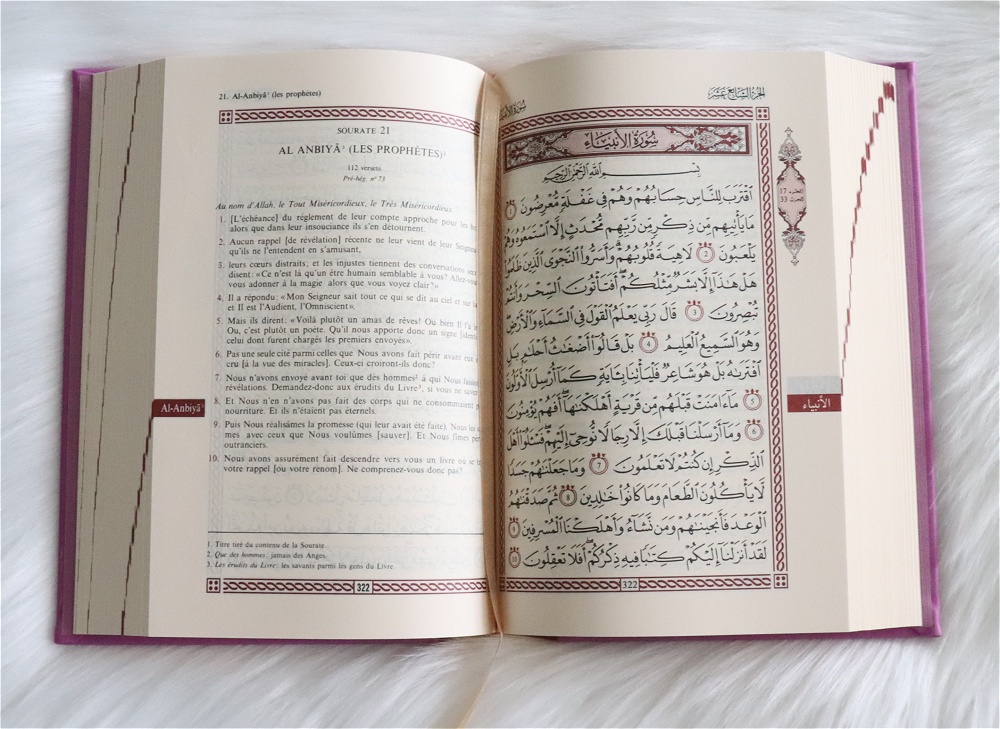 21. Al-Anbiyâ' (les prophètes)
SOURATE 21
AL ANBIYÂ' (LES PROPHÈTES)¹
112 versets
Pré-hég. n° 73
Au nom d'Allah, le Tout Miséricordieux, le Très Miséricordieux.
1. [L'échéance] du règlement de leur compte approche pour les
alors que dans leur insouciance ils s'en détournent.
2. Aucun rappel [de révélation] récente ne leur vient de leur
qu'ils ne l'entendent en s'amusant,
3. leurs cœurs distraits; et les injustes tiennent des conversations
disent: «Ce n'est là qu'un être humain semblable à vous?
vous adonner à la magie alors que vous voyez clair?»
4. Il a répondu: «Mon Seigneur sait tout ce qui se dit au ciel et sur
et Il est l'Audient, l'Omniscient».
5. Mais ils dirent: «Voilà plutôt un amas de rêves! Ou bien Il l'a
Ou, c'est plutôt un poète. Qu'il nous apporte donc un signe
celui dont furent chargés les premiers envoyés».
6. Pas une seule cité parmi celles que Nous avons fait périr avant eux
cru [à la vue des miracles]. Ceux-ci croiront-ils donc?
7. Nous n'avons envoyé avant toi que des hommes² à qui Nous
révélations. Demandez-donc aux érudits du Livre³, si vous ne
8. Et Nous n'en n'avons pas fait des corps qui ne consommaient
nourriture. Et ils n'étaient pas éternels.
9. Puis Nous réalisâmes la promesse (qui leur avait été faite). Nous les
mes avec ceux que Nous voulûmes [sauver]. Et Nous fîmes
outranciers.
10. Nous avons assurément fait descendre vers vous un livre où se
votre rappel [ou votre renom]. Ne comprenez-vous donc pas?
1. Titre tiré du contenu de la Sourate.
2. Que des hommes: jamais des Anges.
3. Les érudits du Livre: les savants parmi les gens du Livre.
322
Al-Anbiyâ'
الجزء السابع عشر
سورة الأنبياء
بِسْمِ اللَّهِ الرَّحْمَٰنِ الرَّحِيمِ
اقْتَرَبَ لِلنَّاسِ حِسَابُهُمْ وَهُمْ فِي غَفْلَةٍ مُّعْرِضُونَ ١
مَا يَأْتِيهِم مِّن ذِكْرٍ مِّن رَّبِّهِم مُّحْدَثٍ إِلَّا اسْتَمَعُوهُ وَهُمْ
يَلْعَبُونَ ٢ لَاهِيَةً قُلُوبُهُمْ وَأَسَرُّوا النَّجْوَى الَّذِينَ ظَلَمُوا
هَلْ هَٰذَا إِلَّا بَشَرٌ مِّثْلُكُمْ أَفَتَأْتُونَ السِّحْرَ وَأَنتُمْ
تُبْصِرُونَ ٣ قَالَ رَبِّي يَعْلَمُ الْقَوْلَ فِي السَّمَاءِ وَالْأَرْضِ
وَهُوَ السَّمِيعُ الْعَلِيمُ ٤ بَلْ قَالُوا أَضْغَاثُ أَحْلَامٍ بَلِ
افْتَرَاهُ بَلْ هُوَ شَاعِرٌ فَلْيَأْتِنَا بِآيَةٍ كَمَا أُرْسِلَ الْأَوَّلُونَ
٥ مَا آمَنَتْ قَبْلَهُم مِّن قَرْيَةٍ أَهْلَكْنَاهَا أَفَهُمْ يُؤْمِنُونَ
٦ وَمَا أَرْسَلْنَا قَبْلَكَ إِلَّا رِجَالًا نُّوحِي إِلَيْهِمْ فَسْئَلُوا أَهْلَ
الذِّكْرِ إِن كُنتُمْ لَا تَعْلَمُونَ ٧ وَمَا جَعَلْنَاهُمْ جَسَدًا
لَّا يَأْكُلُونَ الطَّعَامَ وَمَا كَانُوا خَالِدِينَ ٨ ثُمَّ صَدَقْنَاهُمُ
الْوَعْدَ فَأَنجَيْنَاهُمْ وَمَن نَّشَاءُ وَأَهْلَكْنَا الْمُسْرِفِينَ ٩
لَقَدْ أَنزَلْنَا إِلَيْكُمْ كِتَابًا فِيهِ ذِكْرُكُمْ أَفَلَا تَعْقِلُونَ ١٠
322
17
33
الأنبياء